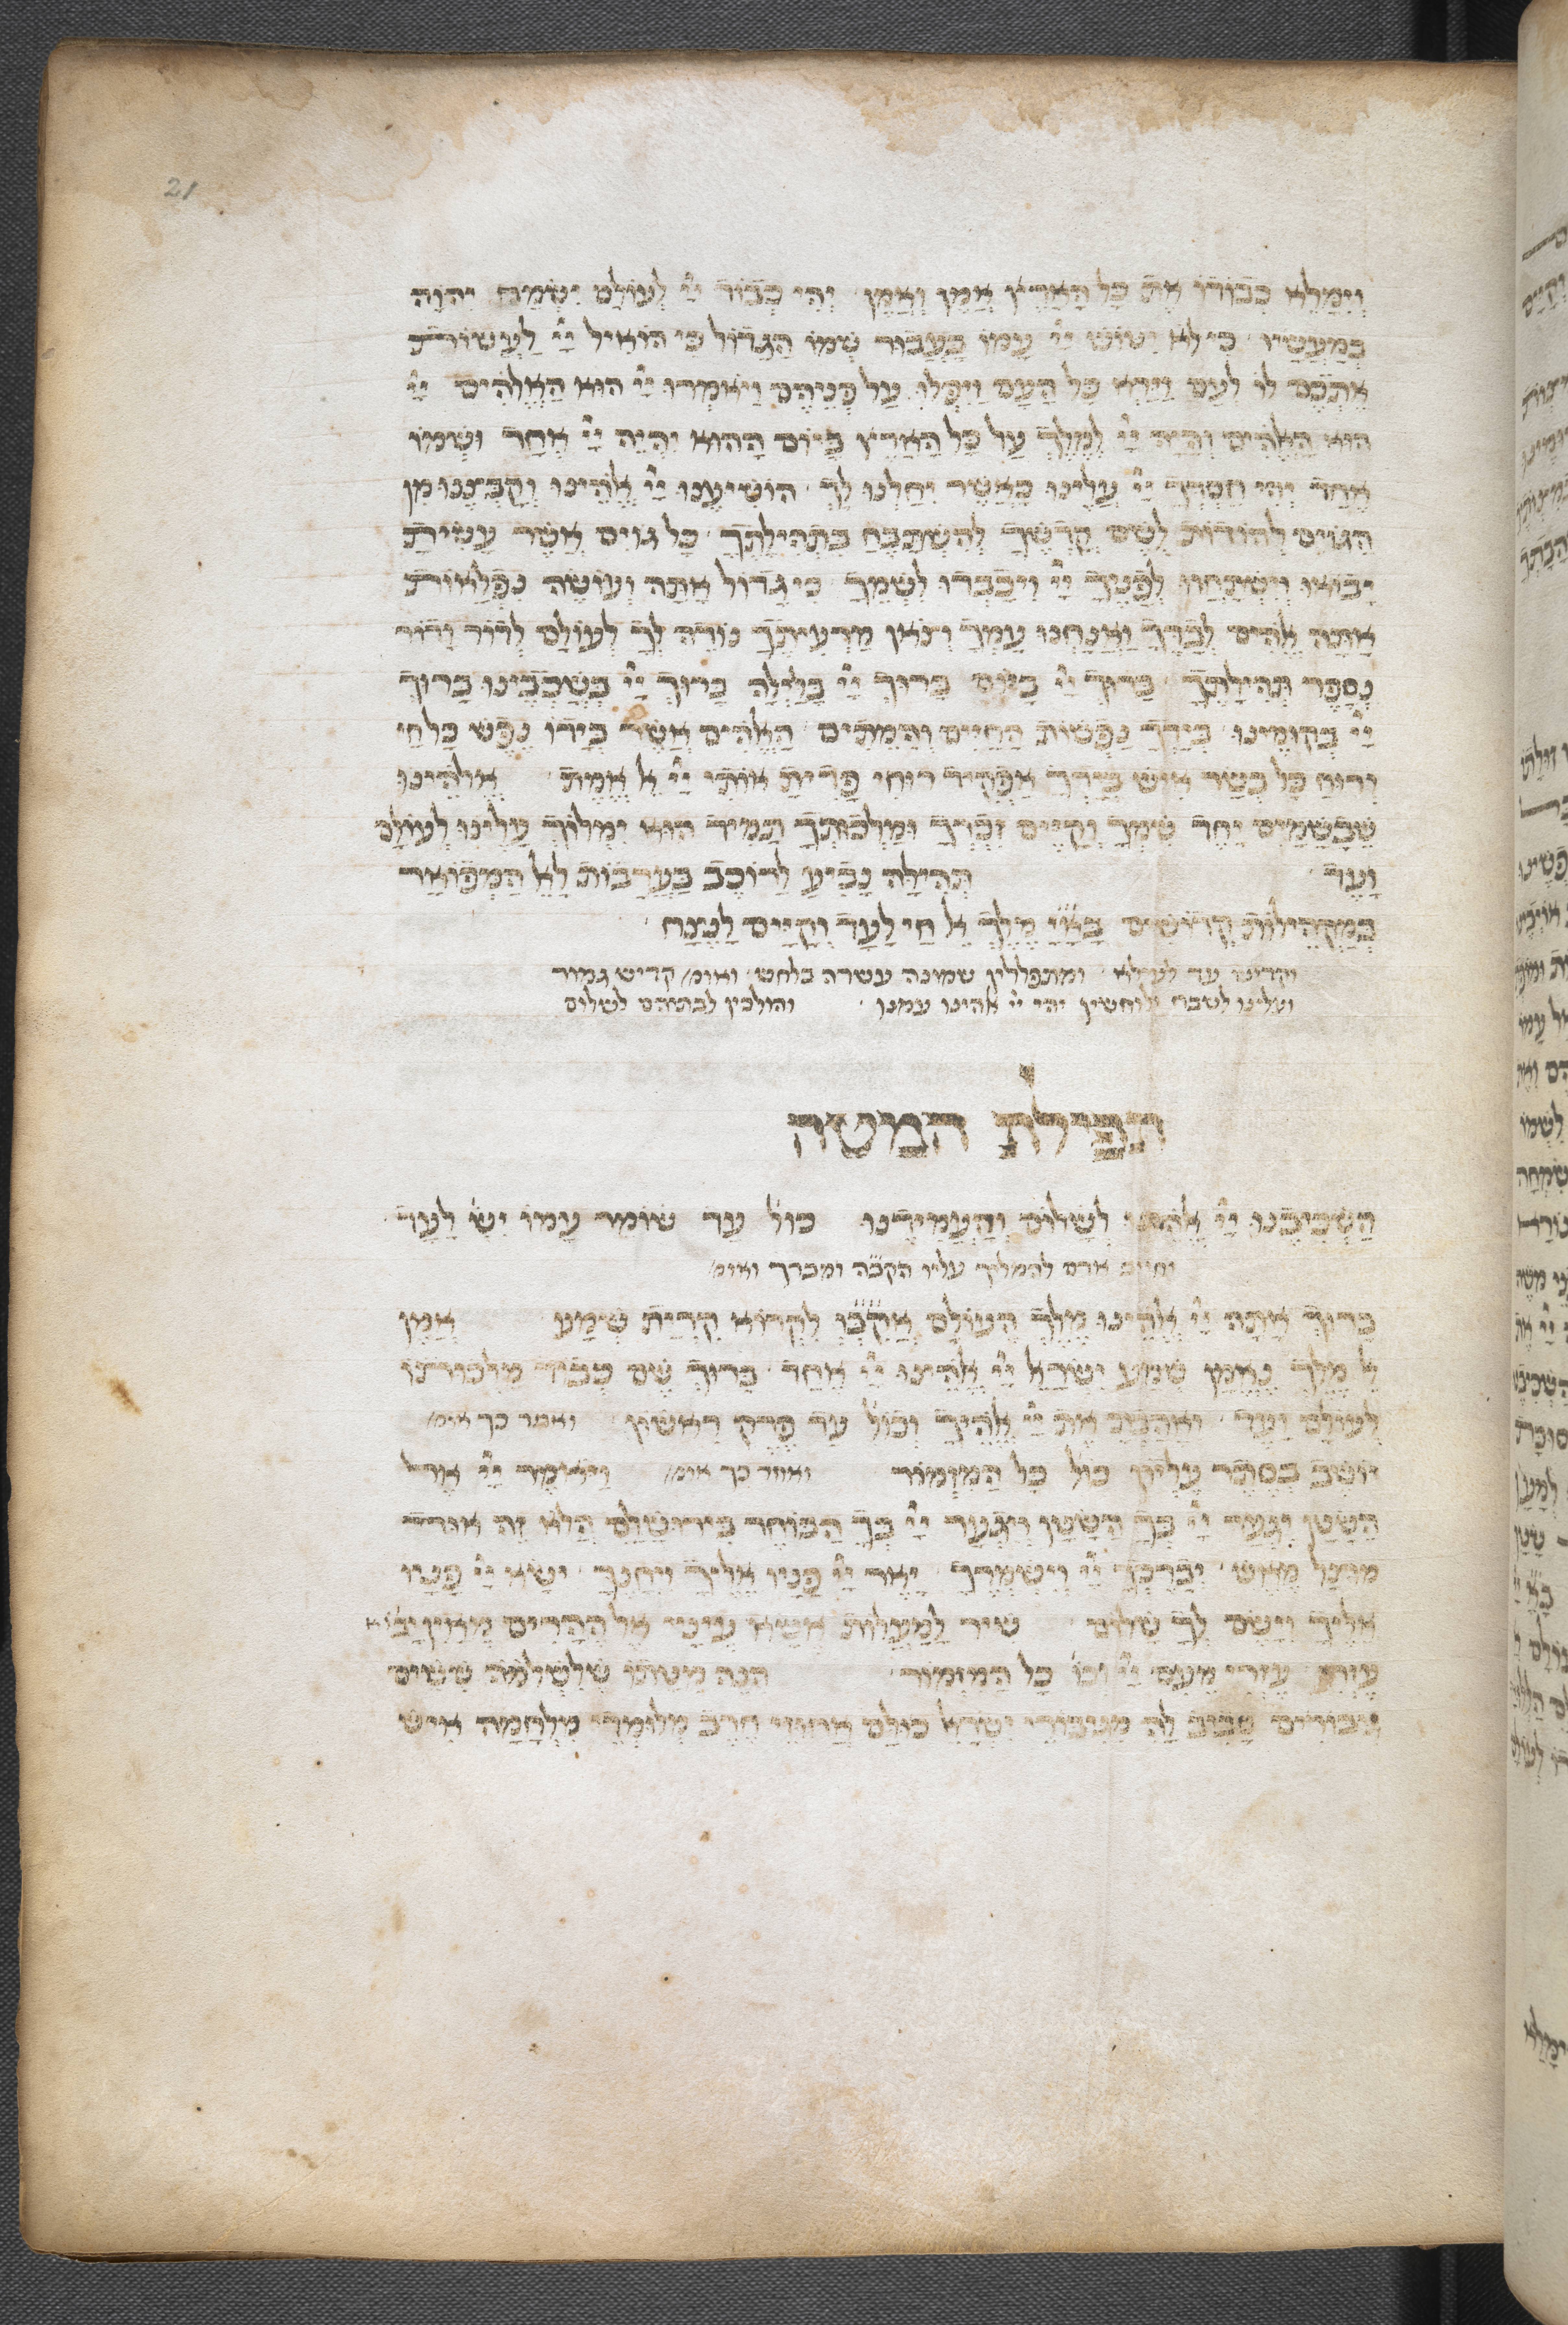 21
וְיִמָּלֵא כְבוֹדוֹ אֶת כָּל הָאָרֶץ אָמֵן וְאָמֵן יְהִי כְבוֹד יי לְעוֹלָם יִשְׂמַח יהוה
בְּמַעֲשָׂיו כי לא יטוש יי עמו בעבור שמו הגדול כי הואיל יי לעשות
אתכם לו לעם וירא כל העם ויפלו על פניהם ויאמרו יי הוא האלהים יי
הוא האלהים והיה יי למלך על כל הארץ ביום ההוא יהיה יי אחד ושמו
אחד יהי חסדך יי עלינו כאשר יחלנו לך הושיענו יי אלהינו וקבצנו מן
הגוים להודות לשם קדשך להשתבח בתהילתך כל גוים אשר עשית
יבואו וישתחוו לפניך יי ויכבדו לשמך כי גדול אתה ועושה נפלאות
אתה אלהים לבדך ואנחנו עמך וצאן מרעיתך נודה לך לעולם לדור ודור
נספר תהילתך ברוך יי ביום ברוך יי בלילה ברוך יי בשכבינו ברוך
יי בקומינו בידך נפשות החיים והמתים האלהים אשר בידו נפש כל חי
ורוח כל בשר איש בידך אפקיד רוחי פדית אותי יי אל אמת אלהינו
שבשמים יחד שמך וקיים דברך ומלכותך תמיד הוא ימלוך עלינו לעולם
ועד תהילה נביע לרוכב בערבות לאל המפואר
במקהילות קדושים בא״י מלך אל חי לעד וקיים לנצח
וקדיש עד לעילא ומתפללין שמונה עשרה בלחש ואומ׳ קדיש גמור
ועלינו לשבח ולוחשין יהי יי אלהינו עמנו והולכין לבתיהם לשלום
תפילת המטה
השכיבנו יי אלהינו לשלום והעמידנו כול׳ עד שומר עמו יש׳ לעד
וחייב אדם להמליך עליו הקב״ה ומברך ואומ׳
ברוך אתה יי אלהינו מלך העולם אקב״ו לקרוא קרית שמע אמן
אל מלך נאמן שמע ישראל יי אלהינו יי אחד ברוך שם כבוד מלכותו
לעולם ועד ואהבת את יי אלהיך וכול׳ עד פרק ראשון ואחר כך אומ׳
יושב בסתר עליון כול׳ כל המזמור ואחר כך אומ׳ ויאמר יי אל
השטן יגער יי בך השטן ויגער יי בך הבוחר בירושלם הלא זה אוד
מוצל מאש יברכך יי וישמרך יאר יי פניו אליך ויחנך ישא יי פניו
אליך וישם לך שלום שיר למעלות אשא עיני אל ההרים מאין יבוא
עזרי עזרי מעם יי וכו׳ כל המזמור הנה מטתו שלשלמה ששים
גבורים סביב לה מגבורי ישראל כולם אחוזי חרב מלומדי מלחמה איש